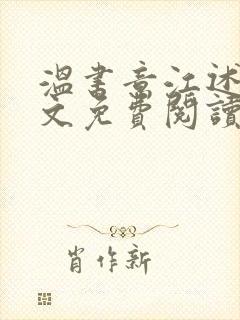 溫書章江述
文免費閱讀
肖作新